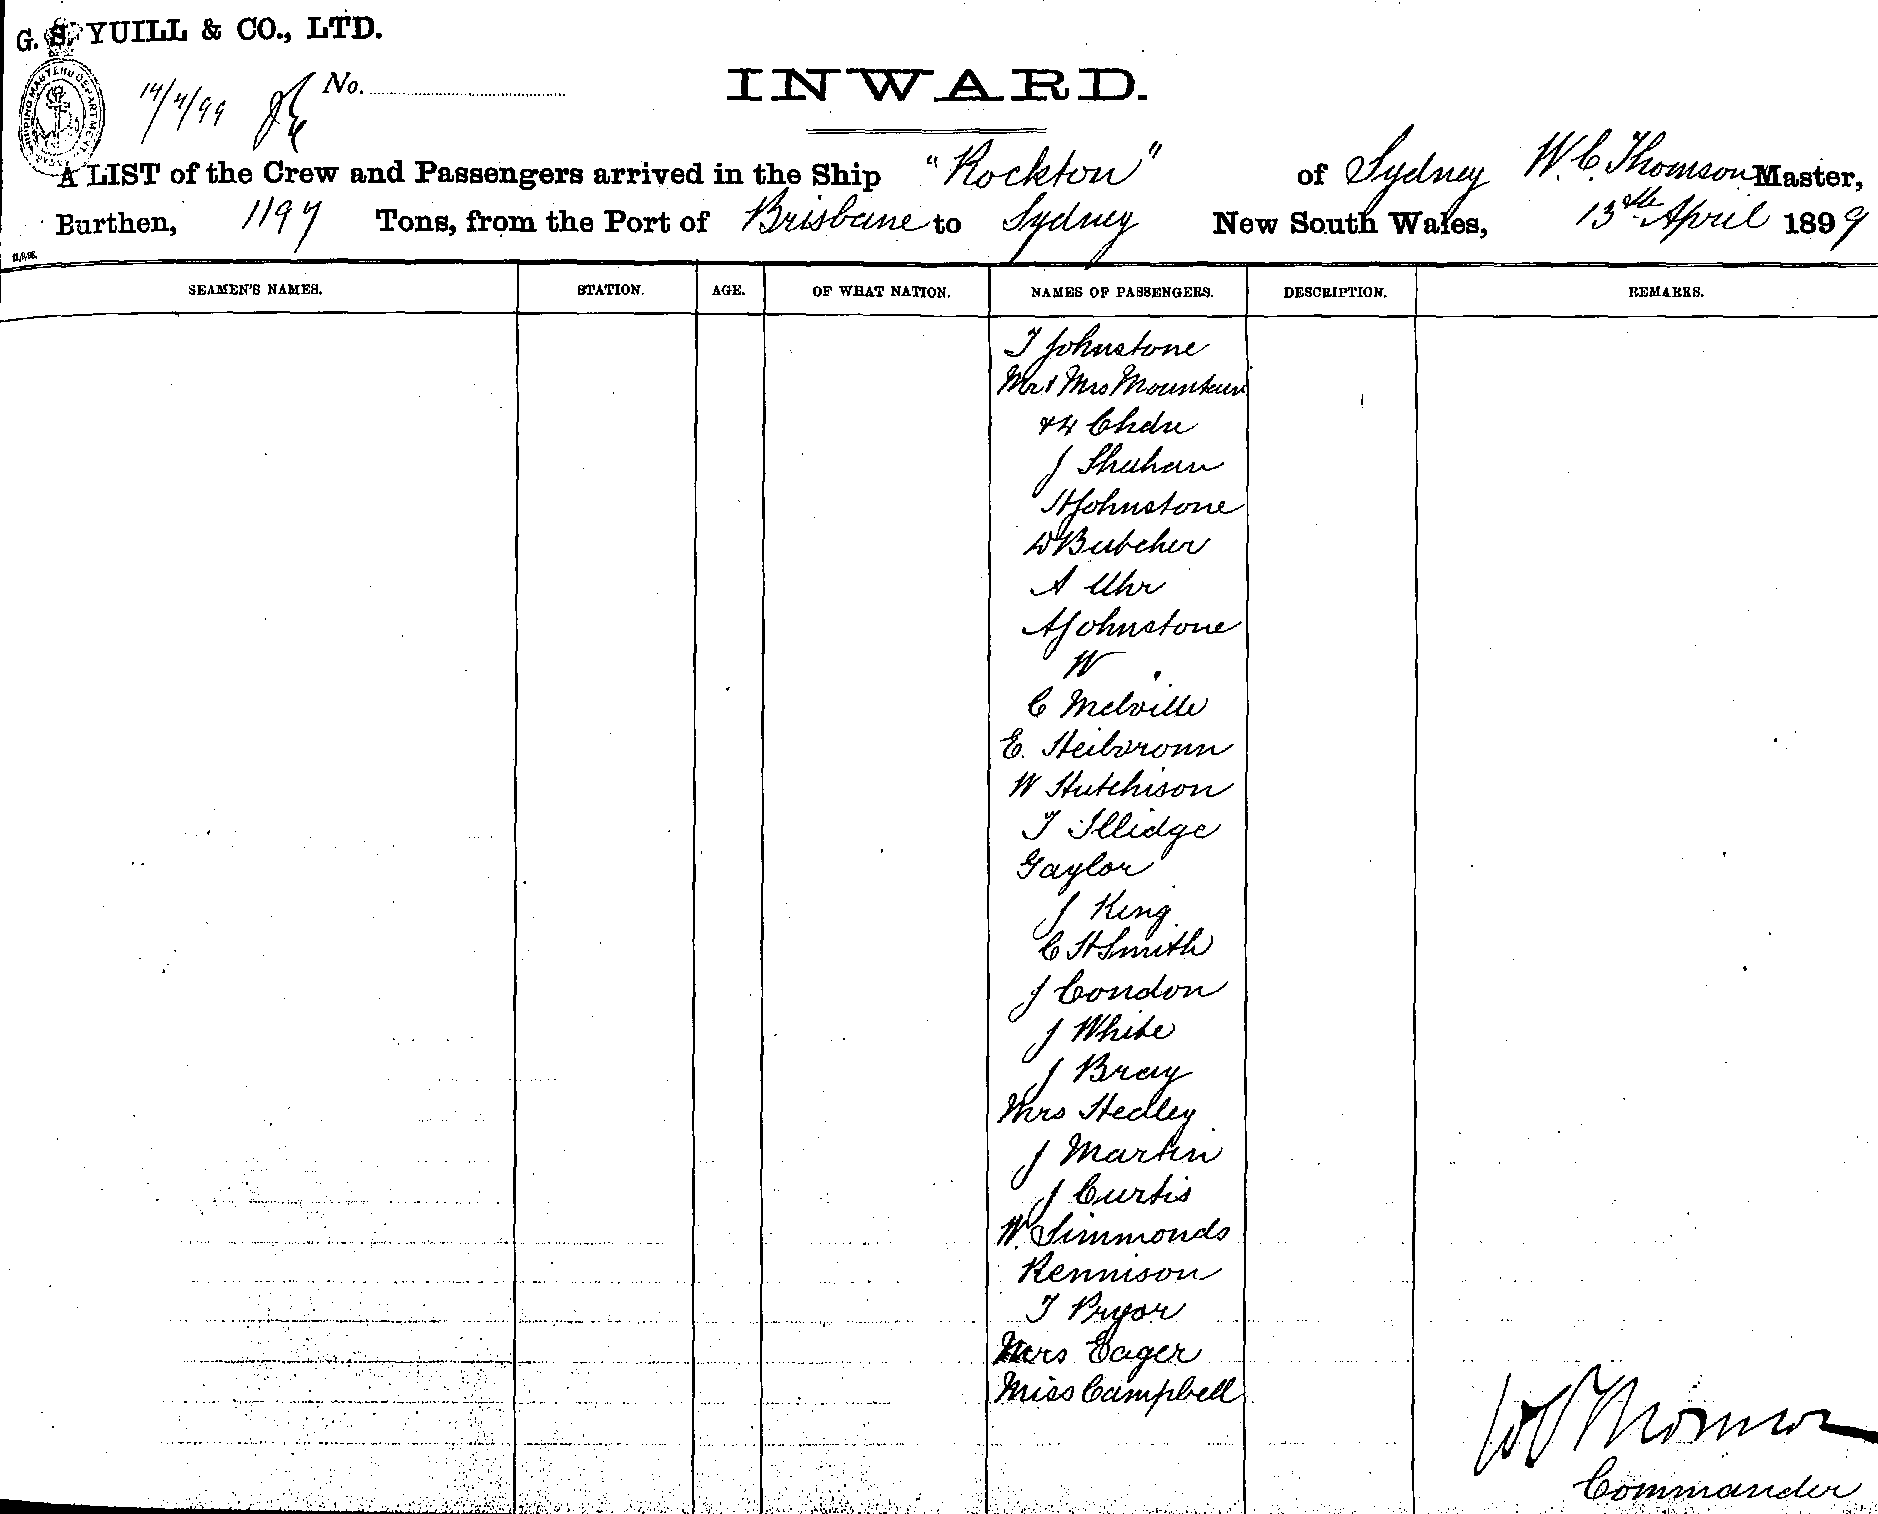 G. S. YUILL & CO., LTD.
14/4/99 No.
INWARD.
A LIST of the Crew and Passengers arrived in the Ship "Rockton" of Sydney W. C. Thomson Master,
Burthen, 1197 Tons, from the Port of Brisbane to Sydney New South Wales, 13th April 1899
SEAMEN'S NAMES. STATION. AGE. OF WHAT NATION. NAMES OF PASSENGERS. DESCRIPTION. REMARKS.
T Johnstone
Mr & Mrs Mountain
& 4 Chdn
J Shuhan
H Johnstone
W Butcher
A Uhr
A Johnstone
W "
C Melville
E. Heilbronn
W Hutchison
T Illidge
Taylor
J King
C H Smith
J Condon
J White
J Bray
Mrs Hedley
J Martin
J Curtis
W. Simmonds
Rennison
T Pryor
Mrs Eager
Miss Campbell
W C Thomson
Commander